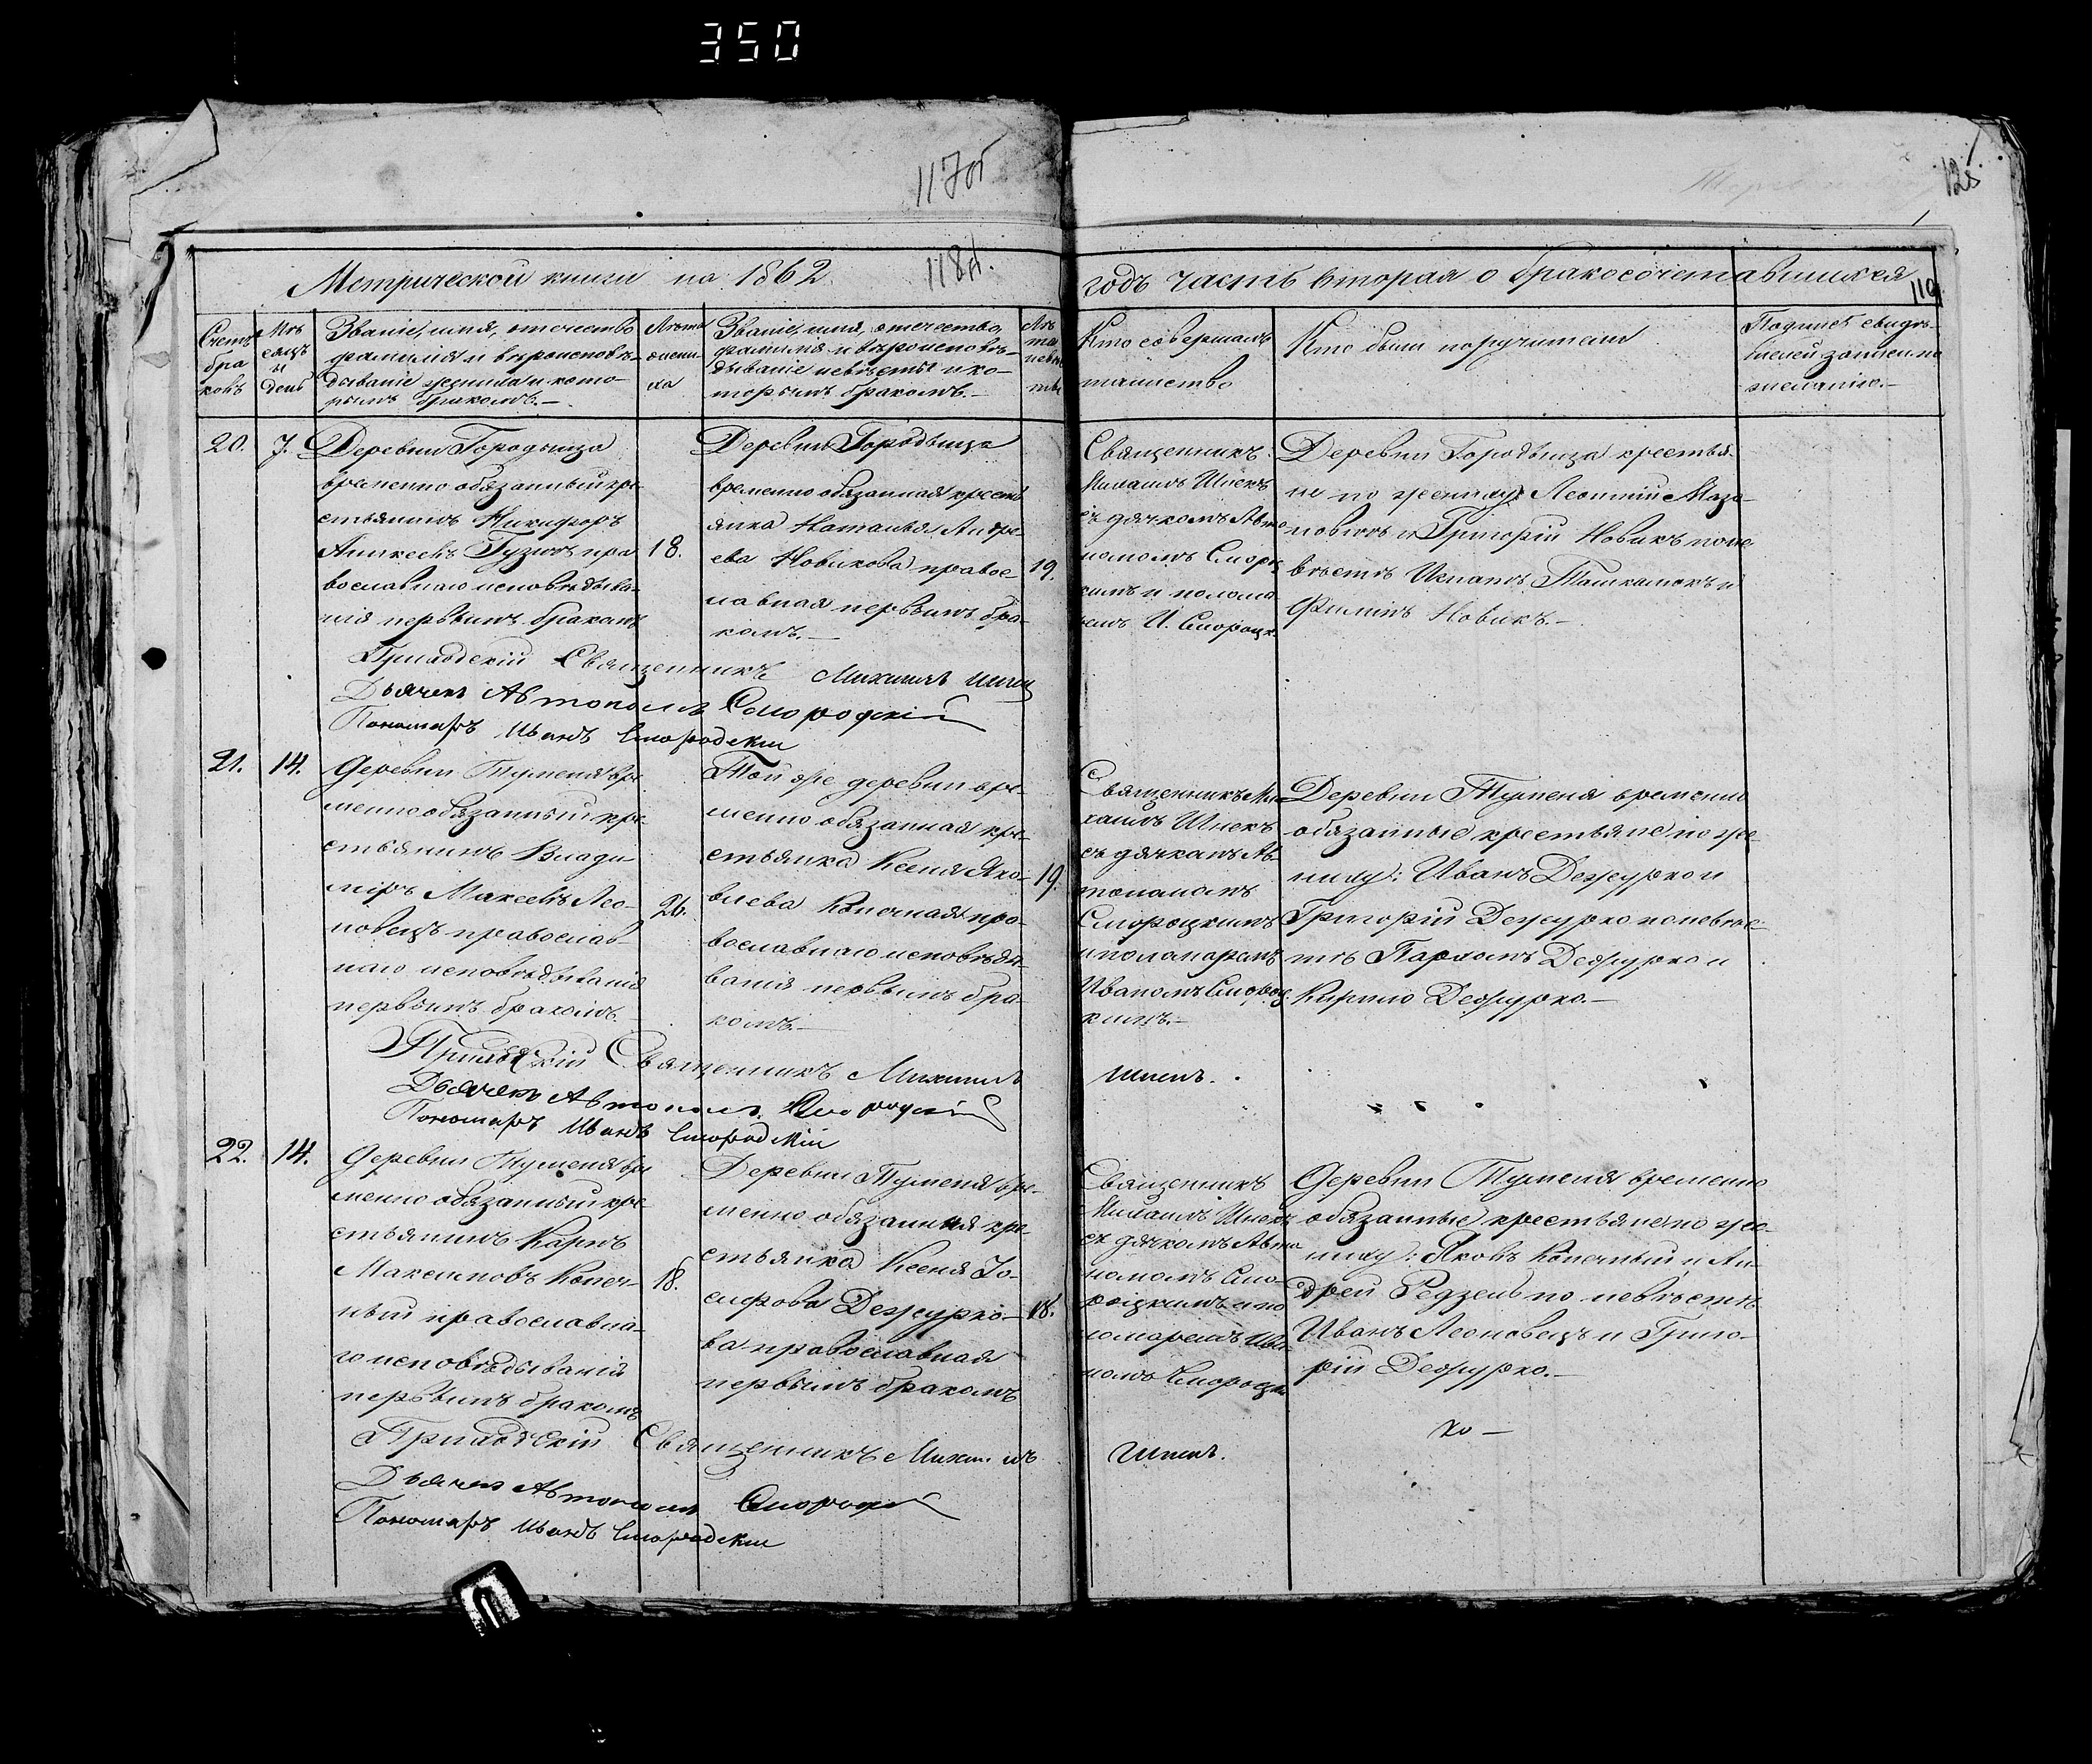 350
117об
125
Метрической книги на 1862.
118А.
годъ часть вторая о бракосочетавшихся
119
Счетъ
бра
ковъ
Мѣ
сяцъ
и
день
Званіе, имя, отечество
фамилія и вѣроисповѣ-
дываніе жениха и кото-
рымъ бракомъ.-
Лѣта
жени
ха
Званіе, имя, отечество,
фамилія и вѣроисповѣ-
дываніе невѣсты и ко-
торымъ бракомъ.-
Лѣ
та
невѣ
сты
Кто совершалъ
таинство
Кто были поручители
Подпись свидѣ-
телей записи по
желанію.-
20.
7.
Деревни Городыща
временно обязанный кре-
стьянинъ Никифоръ
Гузичъ пра
вославнаго исповѣдыва-
нія первымъ бракомъ
18.
Деревни Городыща
временно обязанная кресть
янка Наталья Андре-
ева Новикова правос-
лавная первымъ бра-
комъ.-
19.
Священникъ
Михаилъ Шпекъ
съ дячкомъ Авто
номомъ Смород
кимъ и понома
ремъ И. Смородк.
Деревни Городыща крестья-
не по жениху: Леонтій Мазо-
новичъ и Григорій Новикъ по не-
вѣстѣ Игнатъ и
Филипъ Новикъ.-
Приходскій Священникъ Михаилъ Шпек
Дьячекъ Автономъ Смородскій
Пономаръ Иванъ Смородскій
21.
14.
Деревни Туменя вре-
менно обязанный кре-
стьянинъ Влади-
міръ Макеевъ Лео-
новецъ православ-
наго исповѣдыванія
первымъ бракомъ.
26.
Той же деревни вре-
менно обязанная кре-
стьянка Ксенія Яко-
влева Конечная пра-
вославнаго исповѣды-
ванія первымъ бра-
комъ.-
19.
Священникъ Ми-
хаилъ Шпекъ
съ дячкомъ Ав-
тономомъ
Смородкимъ
и понамаремъ
Иваномъ Смород
кимъ.-
Деревни Туменя временно
обязанные крестьяне по же-
ниху: Иванъ Дежурко и
Григорій Дежурко по невѣс-
тѣ Пархомъ Дежурко и
Кирило Дежурко.-
Приходскій Священникъ Михаилъ
Шпекъ.
Дьячекъ Автономъ Смородскій
Пономаръ Иванъ Смородскій
22.
14.
Деревни Туменя вре
менно обязанный кре-
стьянинъ Карпъ
Максимовъ Конеч-
ный православна-
го исповѣдыванія
первымъ бракомъ
18.
Деревни Туменя вре-
менно обязанная кре-
стьянка Ксенія Іо-
сифова Дежурко-
ва православная
первымъ бракомъ
18.
Священникъ
Михаилъ Шпекъ
съ дячкомъ Авто
номомъ Смо-
родкимъ и по
номаремъ Ива
номъ Смородки
Деревни Туменя временно
обязанные крестьяне по же-
ниху: Яковъ Конечный и Ан-
дрей Редзель по невѣстѣ
Иванъ Леоновецъ и Григо-
рій Дежурко.-
Приходскій Священникъ Михаилъ
Шпекъ.
Дьячекъ Автономъ Смородскій
Пономаръ Иванъ Смородскій